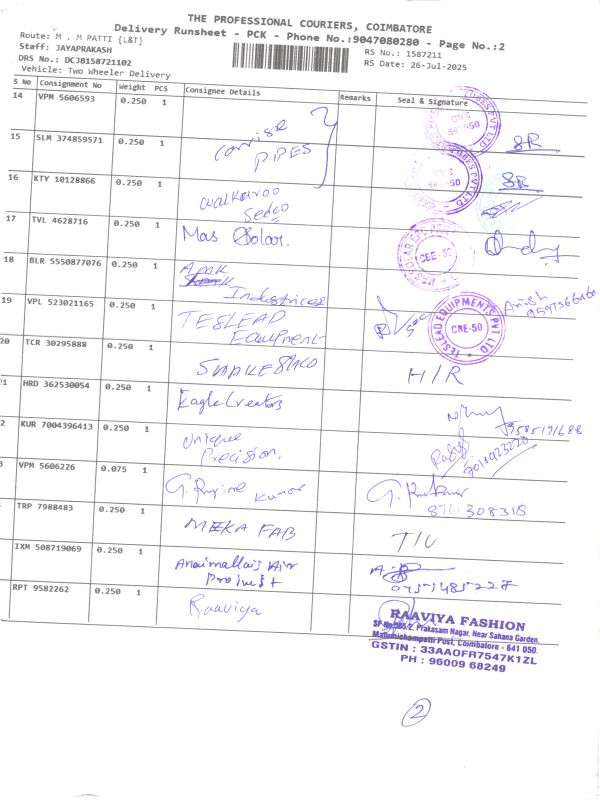 THE PROFESSIONAL COURIERS, COIMBATORE
Delivery Runsheet - PCK - Phone No.:9047080280 - Page No.:2
Route: M . M PATTI {L&T}
Staff: JAYAPRAKASH
DRS No.: DCJ8158721102
Vehicle: Two Wheeler Delivery
RS No.: 1587211
RS Date: 26-Jul-2025
S No Consignment No Weight PCS Consignee Details Remarks Seal & Signature
14 VPM 5606593 0.250 1
15 SLM 374859571 0.250 1 PIPES SR
16 KTY 10128866 0.250 1 Walkaroo SR
17 TVL 4628716 0.250 1 Mas Solar. CBE-50
18 BLR 5550877076 0.250 1 Amk
Industrices
19 VPL 523021165 0.250 1 TESLEAD
Equipment
TESLEAD EQUIPMENTS PVT LTD
CBE-50
Anish
20 TCR 30295888 0.250 1 H/R
1 HRD 362530054 0.250 1 Eagle Creators
9585191688
2 KUR 7004396413 0.250 1 Unique
Precision.
3 VPM 5606226 0.075 1 G. Kumar G.
TRP 7988483 0.250 1 MEKA FAB
IXM 508719069 0.250 1 Anaimallais Air
Product
RPT 9582262 0.250 1 Raaviya
RAAVIYA FASHION
SF No 565/2, Prakasam Nagar, Near Sahana Garden,
Malumichampatti Post, Coimbatore - 641 050.
GSTIN : 33AAOFR7547K1ZL
PH : 96009 68249
2